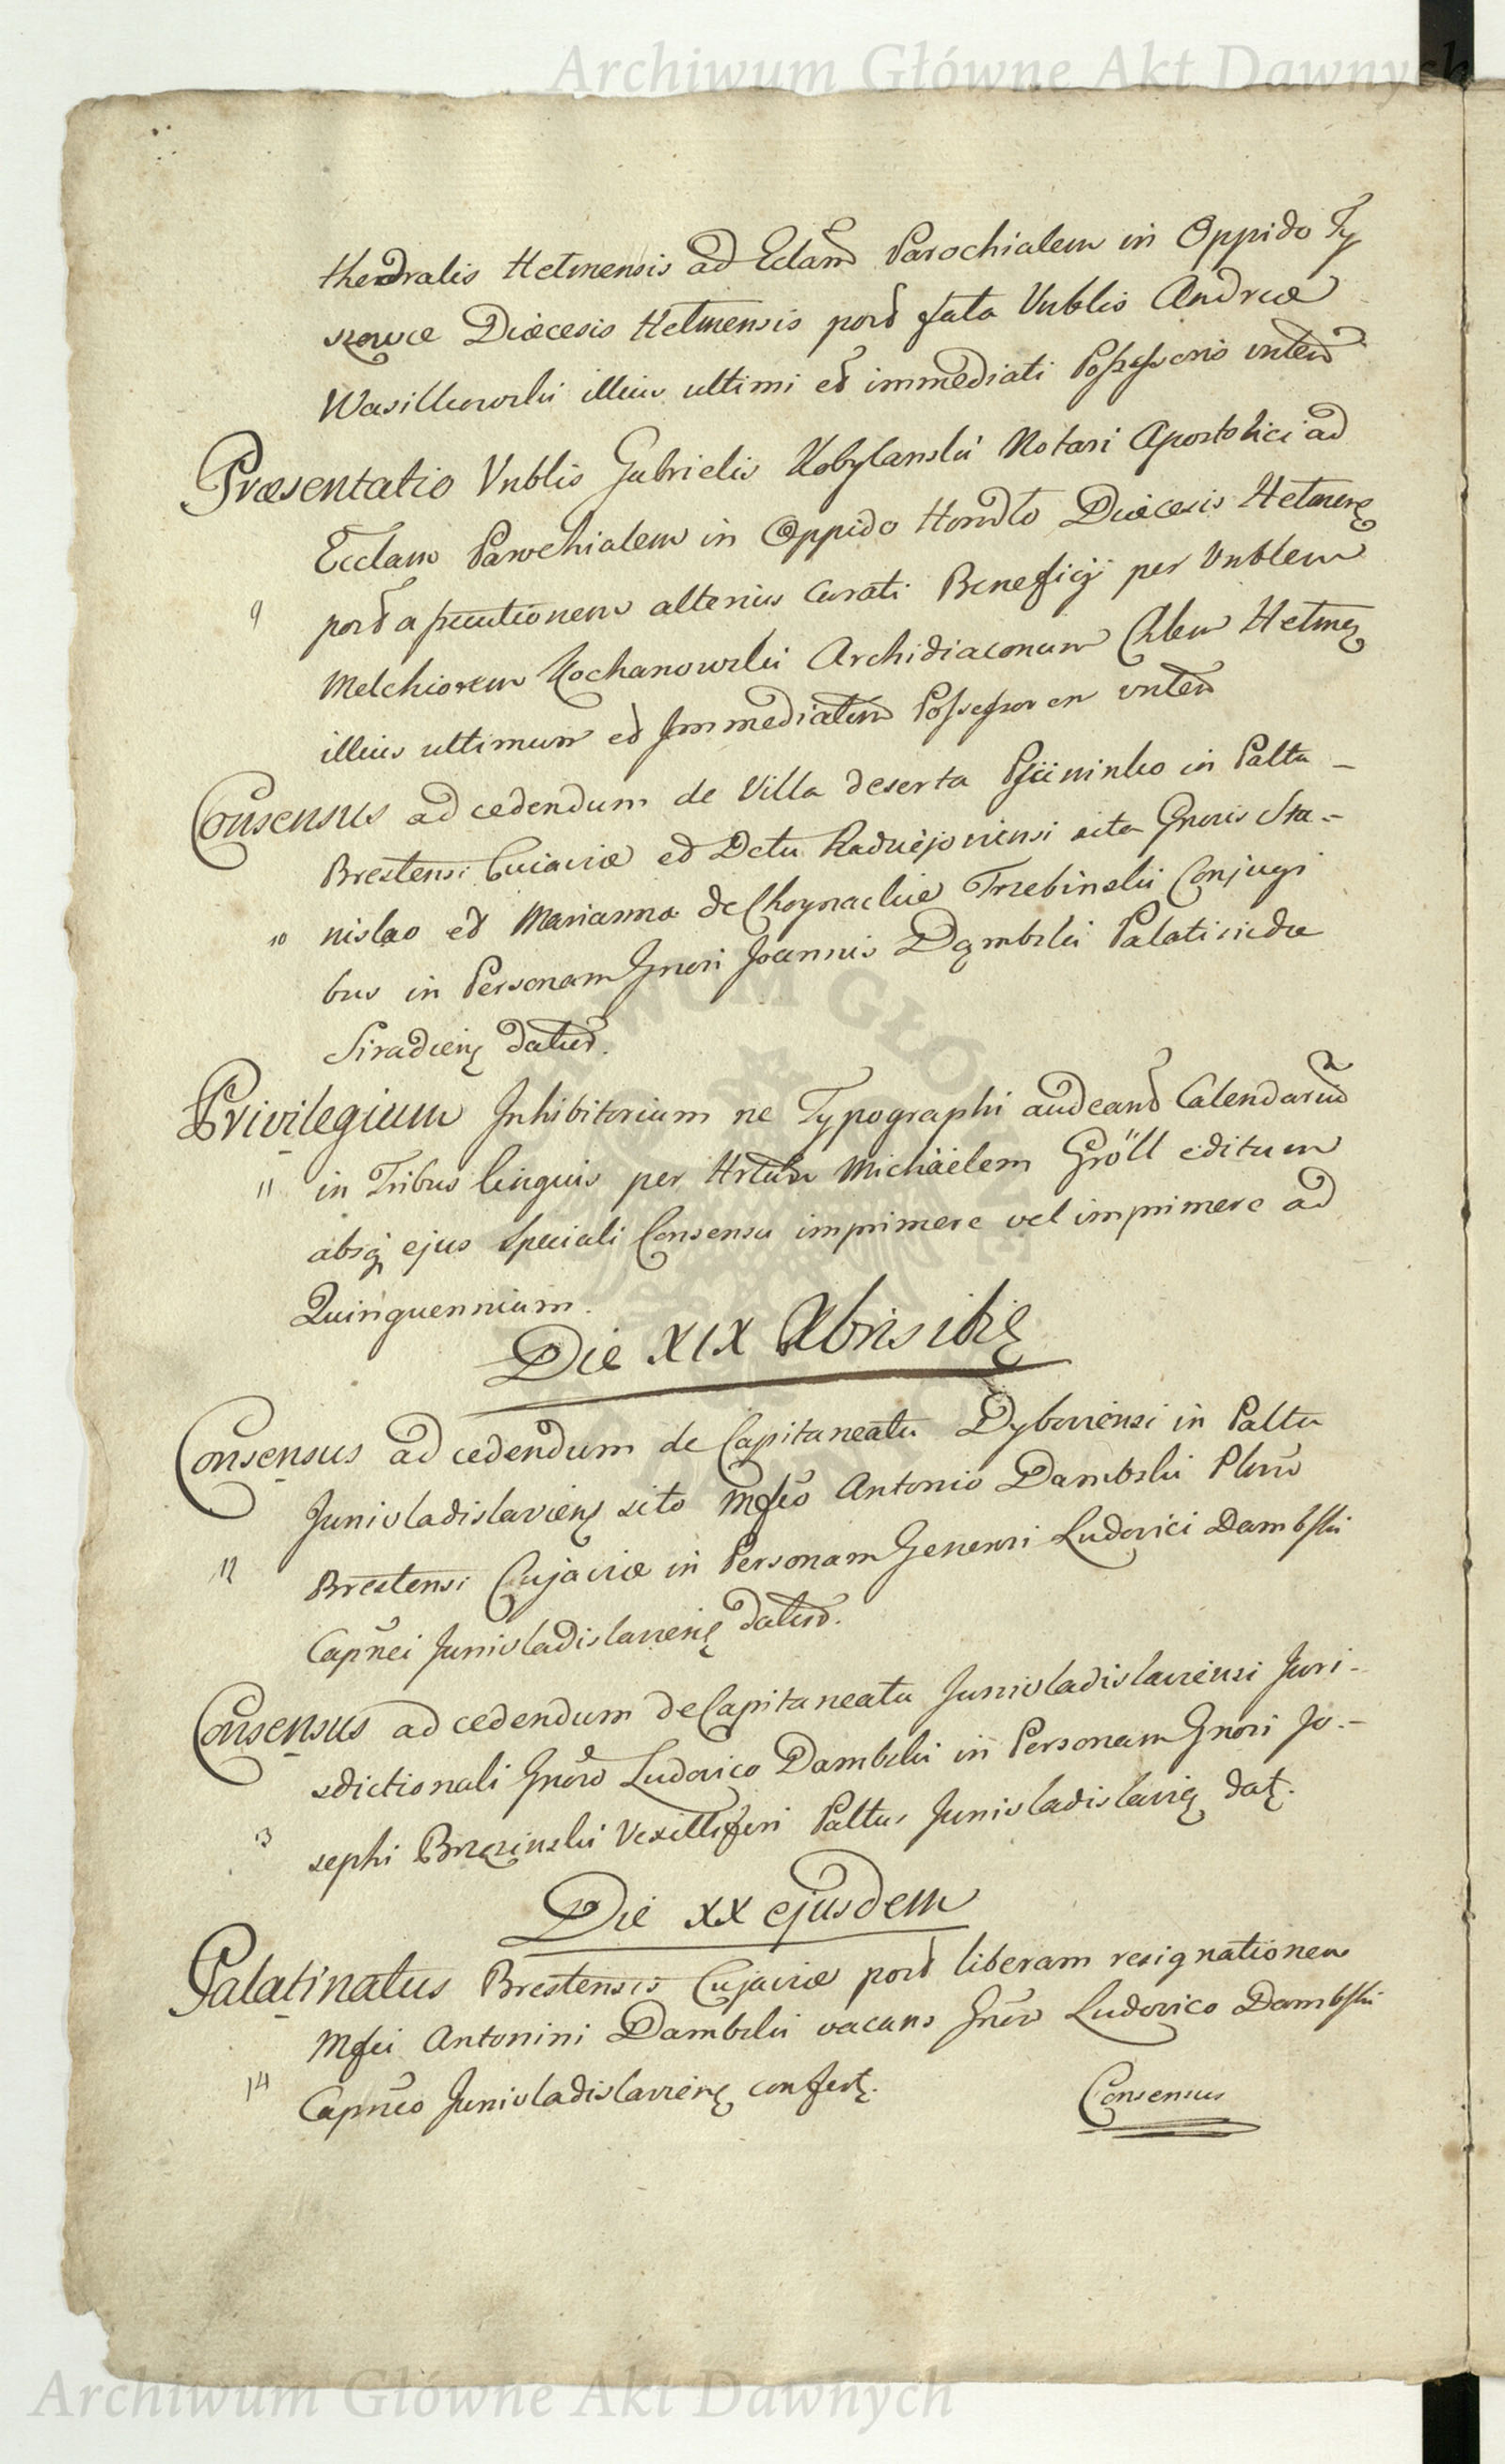 Archiwum Główne Akt Dawnych
thedralis Hetmensis ad Eclam Parochialem in Oppido Ty
szowce Diæcesis Helmensis post fata Vnblis Andreæ
Wasilkowski illius ultimi et immediati Possessoris vnten
Præsentatio Vnblis Gabrielis Kobylanski Notari Apostolici ad
Ecclam Parochialem in Oppido Horodło Diæcesis Helmens
9 post acceptionem alterius Curati Beneficij per Vnblem
Melchiorem Kochanowski Archidiaconum Chlem Helmens
illius ultimum et Immediatum Possessorem vnten
Consensus ad cedendum de Villa deserta in Paltu
Brestensi Cuiaviæ et Dctu Radziejoviensi sita Gnoris Sta-
10 nislao et Marianna de Choynackie Trzebinskii Conjugi
bus in Personam Gnori Joannis Dąmbski Palatinidæ
Siradiens datus.
Privilegium Inhibitorium ne Typographi audeant Calendarium
11 in Tribus linguis per Michäelem Gröll editum
absq ejus speciali Consensu imprimere vel imprimere ad
Quinquennium.
Die XIX Xbris ibid
Consensus ad cedendum de Capitaneatu Dyboviensi in Paltu
Junivladislaviens sito Mfco Antonio Dambski Plno
12 Brestensi Cujaviæ in Personam Generosi Ludovici Dambski
Capnei Junivladislaviens datus.
Consensus ad cedendum de Capitaneatu Junivladislaviensi Juri-
sdictionali Gnoro Ludovico Dambski in Personam Gnori Jo-
13 sephi Brzezinski Vexilliferi Paltus Junivladislavies dat.
Die XX ejusdem
Palatinatus Brestensis Cujaviæ post liberam resignationem
Mfci Antonini Dambski vacans Gnro Ludovico Dambski
14 Capneo Junivladislaviens confert.
Consensus
Archiwum Główne Akt Dawnych